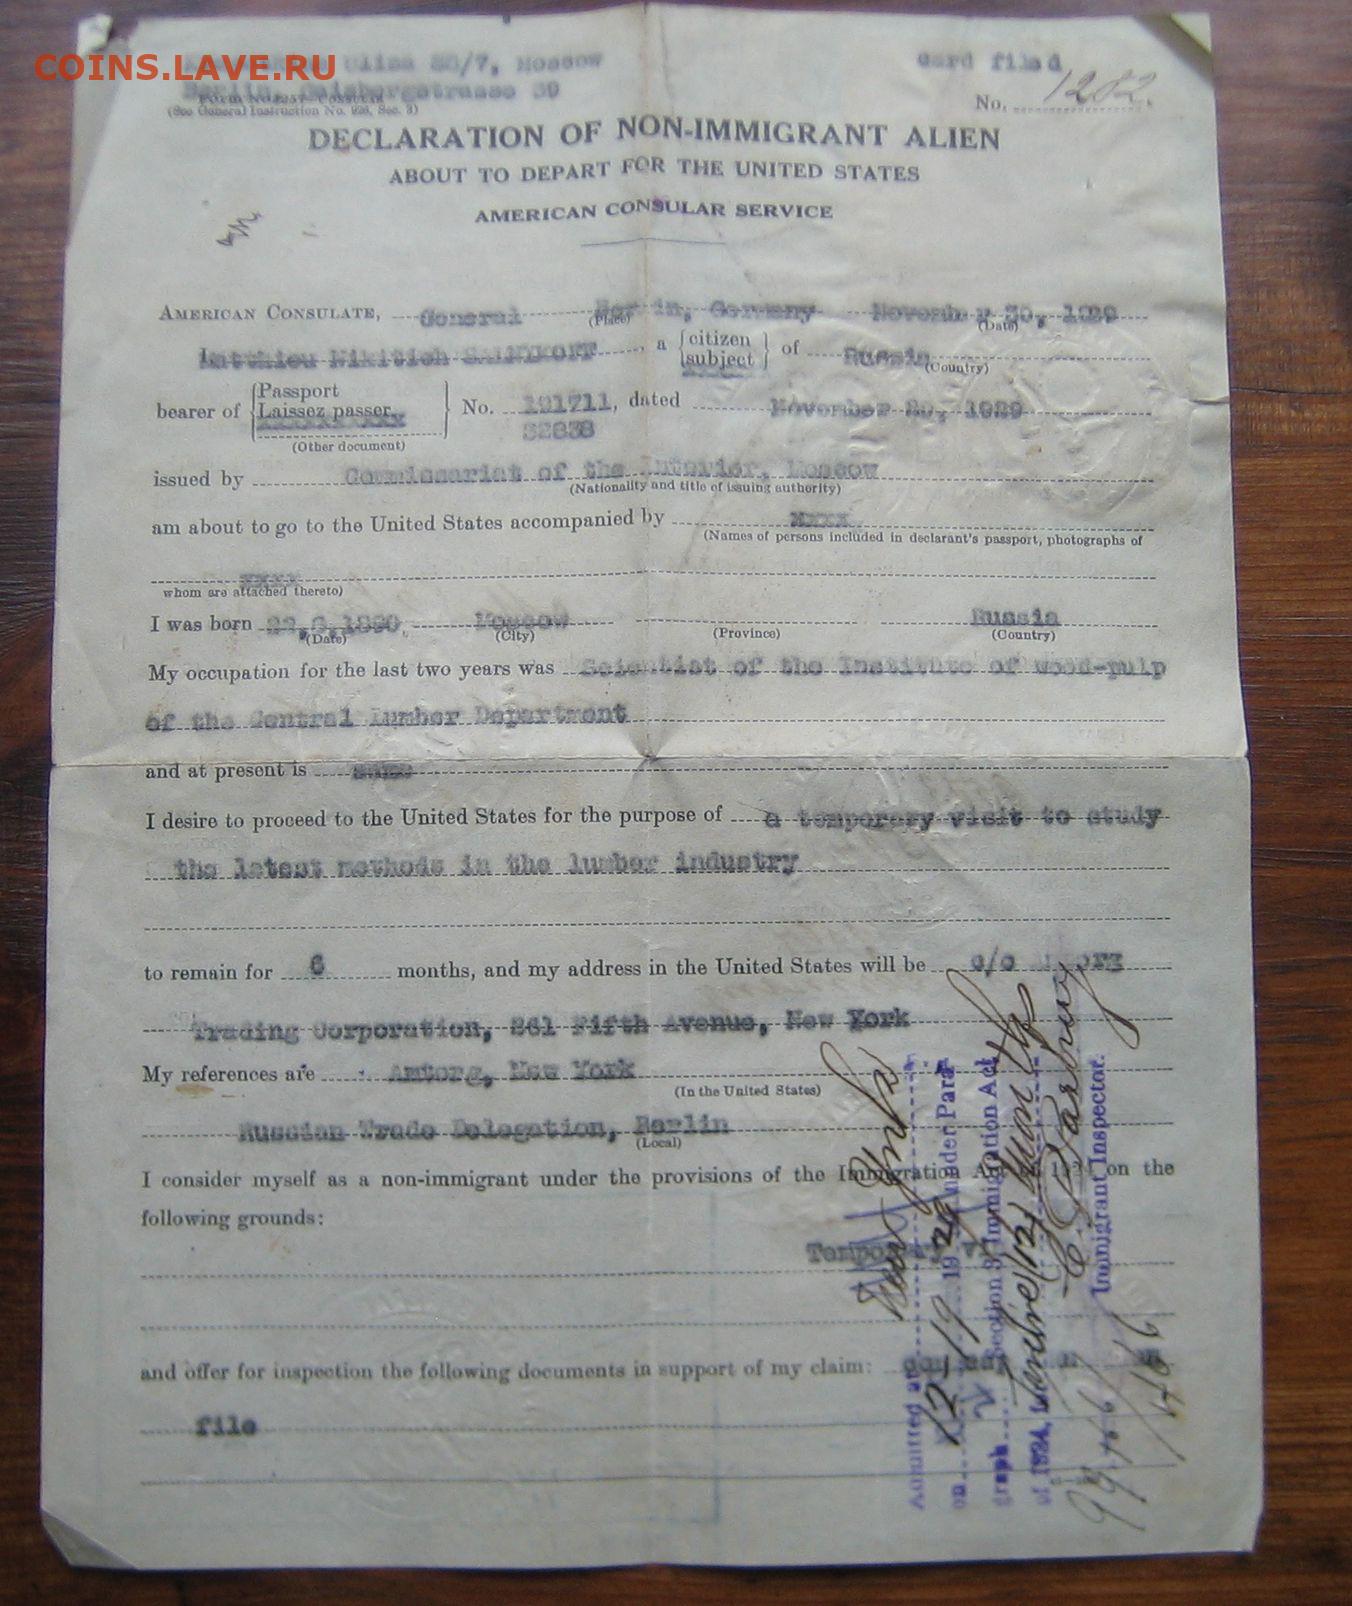 COINS.LAVE.RU
Ulisa 28/7, Moscow
Berlin, Geisbergstrasse 39
Card filed
No. 1282
(See General Instruction No. 926, Sec. 3)
DECLARATION OF NON-IMMIGRANT ALIEN
ABOUT TO DEPART FOR THE UNITED STATES
AMERICAN CONSULAR SERVICE
AMERICAN CONSULATE, General Berlin, Germany November 30, 1929
(Place) (Date)
Matthieu Nikitich , a citizen subject of Russia
(Country)
bearer of Passport Laissez passer No. 191711, dated November 20, 1929
32838
(Other document)
issued by Commissariat of the Interior, Moscow
(Nationality and title of issuing authority)
am about to go to the United States accompanied by xxxx
(Names of persons included in declarant's passport, photographs of
xxxx
whom are attached thereto)
I was born 1890, Moscow Russia
(Date) (City) (Province) (Country)
My occupation for the last two years was Scientist of the Institute of wood-pulp
of the Central Lumber Department
and at present is same
I desire to proceed to the United States for the purpose of a temporary visit to study
the latest methods in the lumber industry
to remain for 6 months, and my address in the United States will be c/o Amtorg
Trading Corporation, 261 Fifth Avenue, New York
My references are Amtorg, New York
(In the United States)
Russian Trade Delegation, Berlin
(Local)
I consider myself as a non-immigrant under the provisions of the Immigration Act of 1924 on the
following grounds:
Temporary
and offer for inspection the following documents in support of my claim:
file
Admitted at New York
on 12-19 1929 under Para-
graph 2 Section 3, Immigration Act
of 1924, Twelve (12) months
Immigrant Inspector.